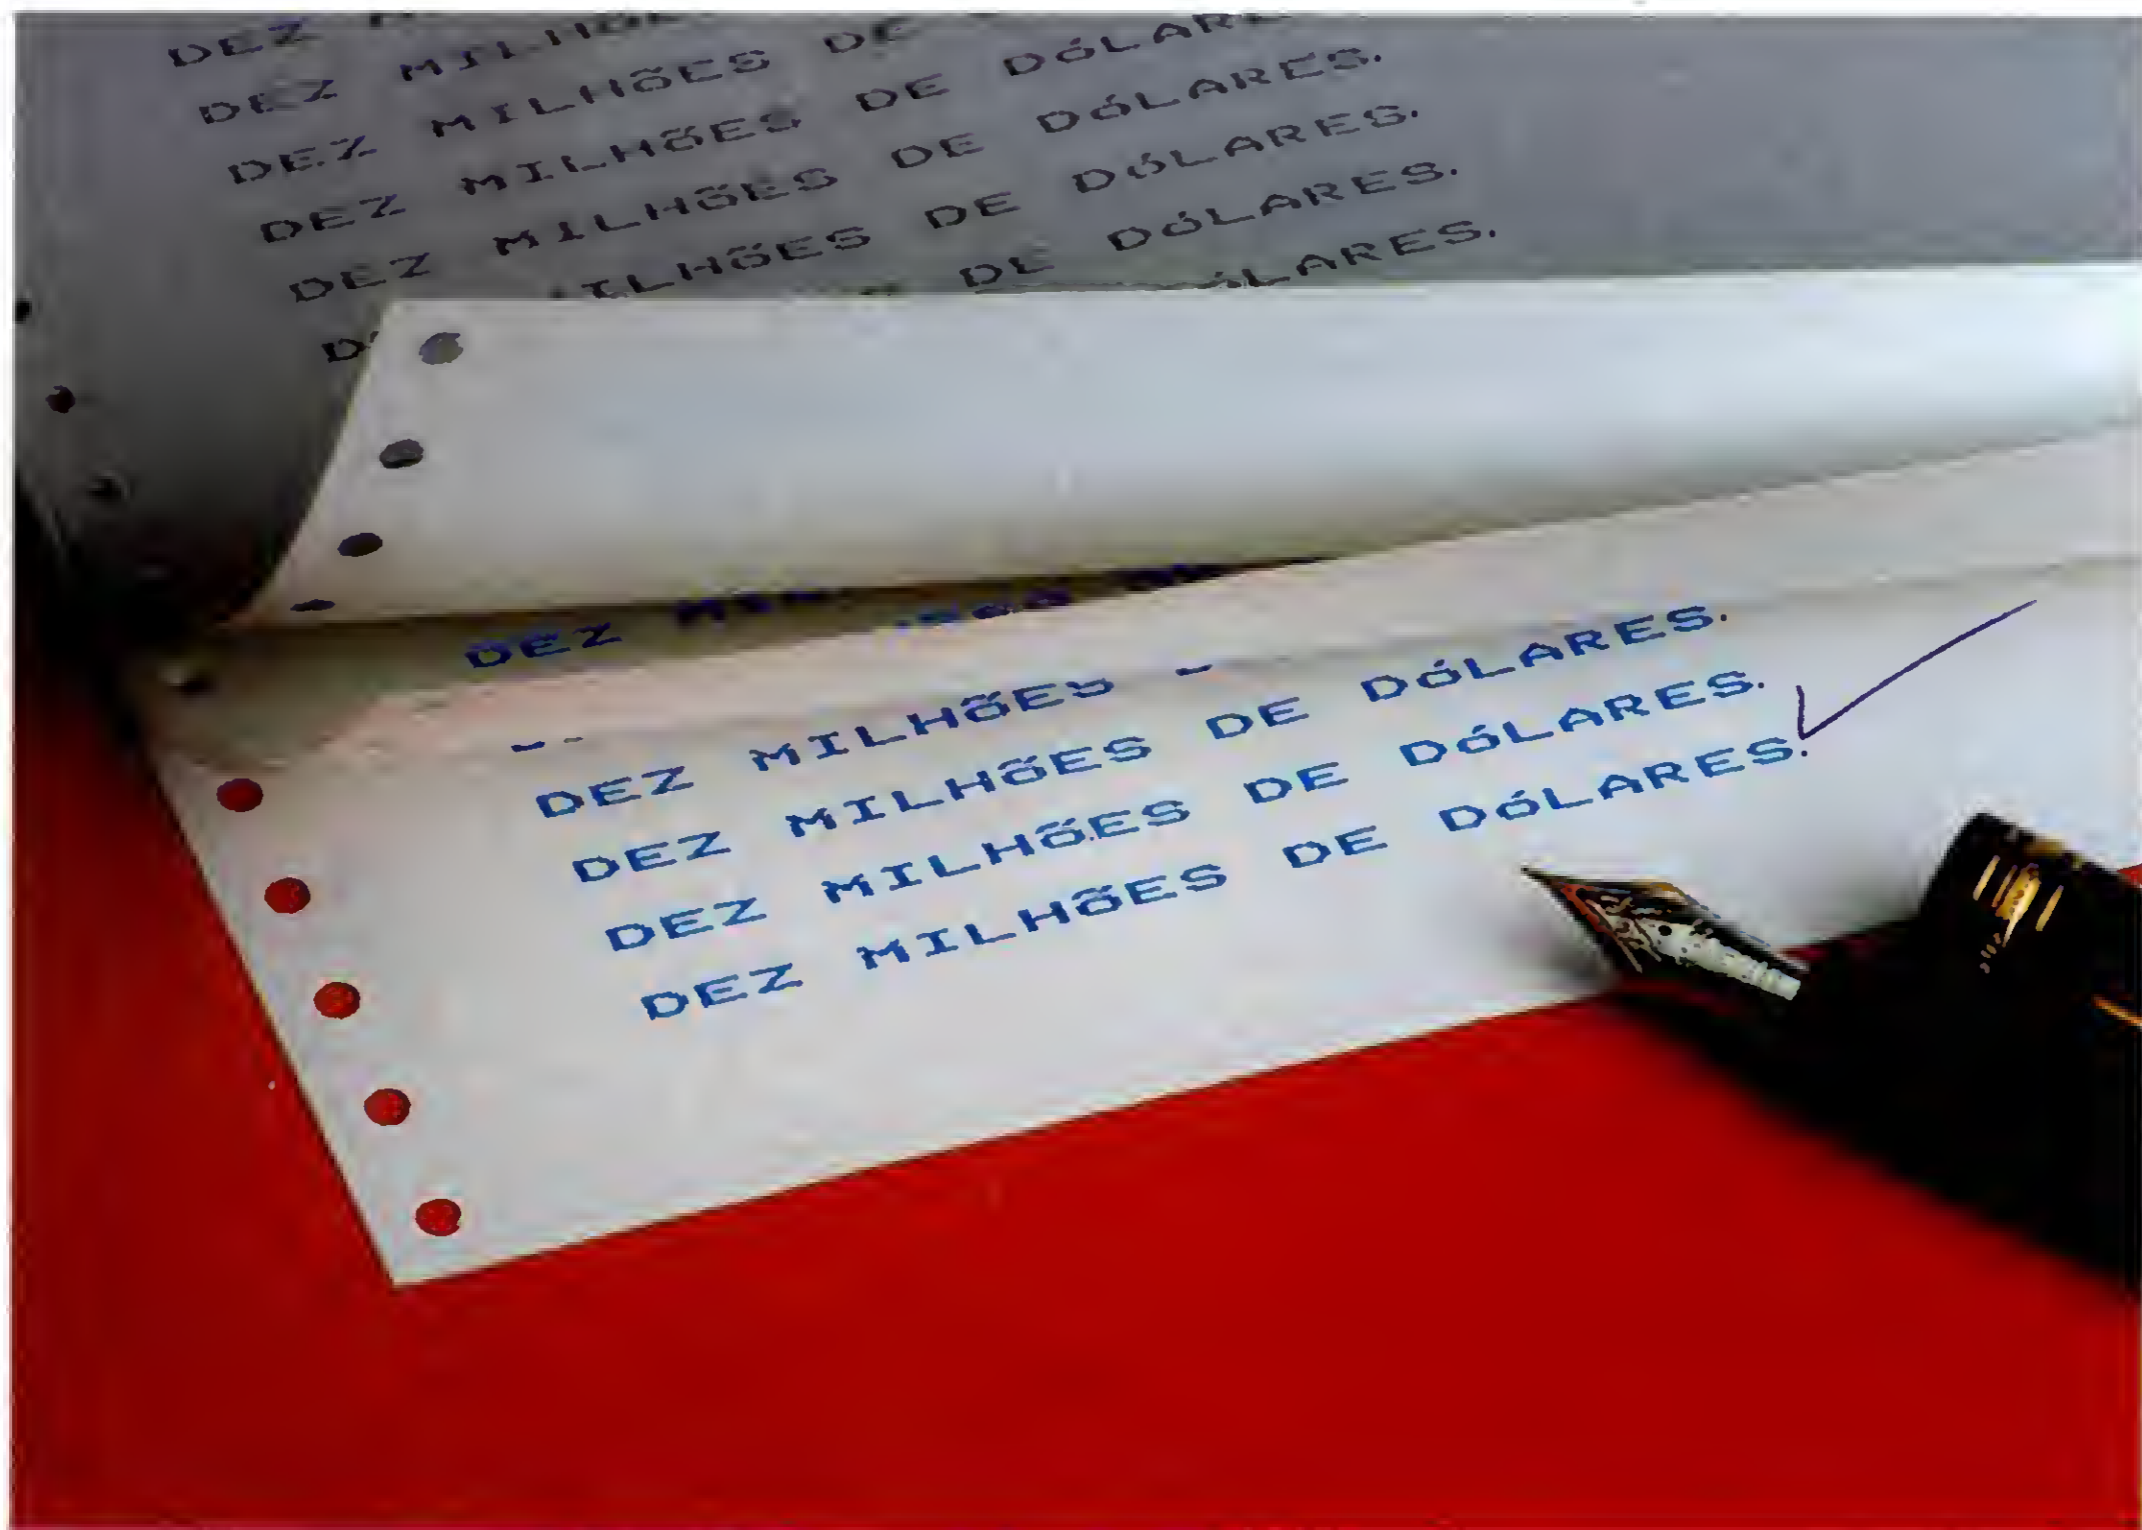 DEZ
DEZ
DEZ MILHÕES DE
DEZ MILHÕES DE DÓLARE
DEZ MILHÕES DE DÓLARES.
ILHÕES DE DÓLARES.
DE DÓLARES.
ÓLARES.
DEZ
DEZ MILHÕES
DEZ MILHÕES DE DÓLARES.
DEZ MILHÕES DE DÓLARES.
DEZ MILHÕES DE DÓLARES.